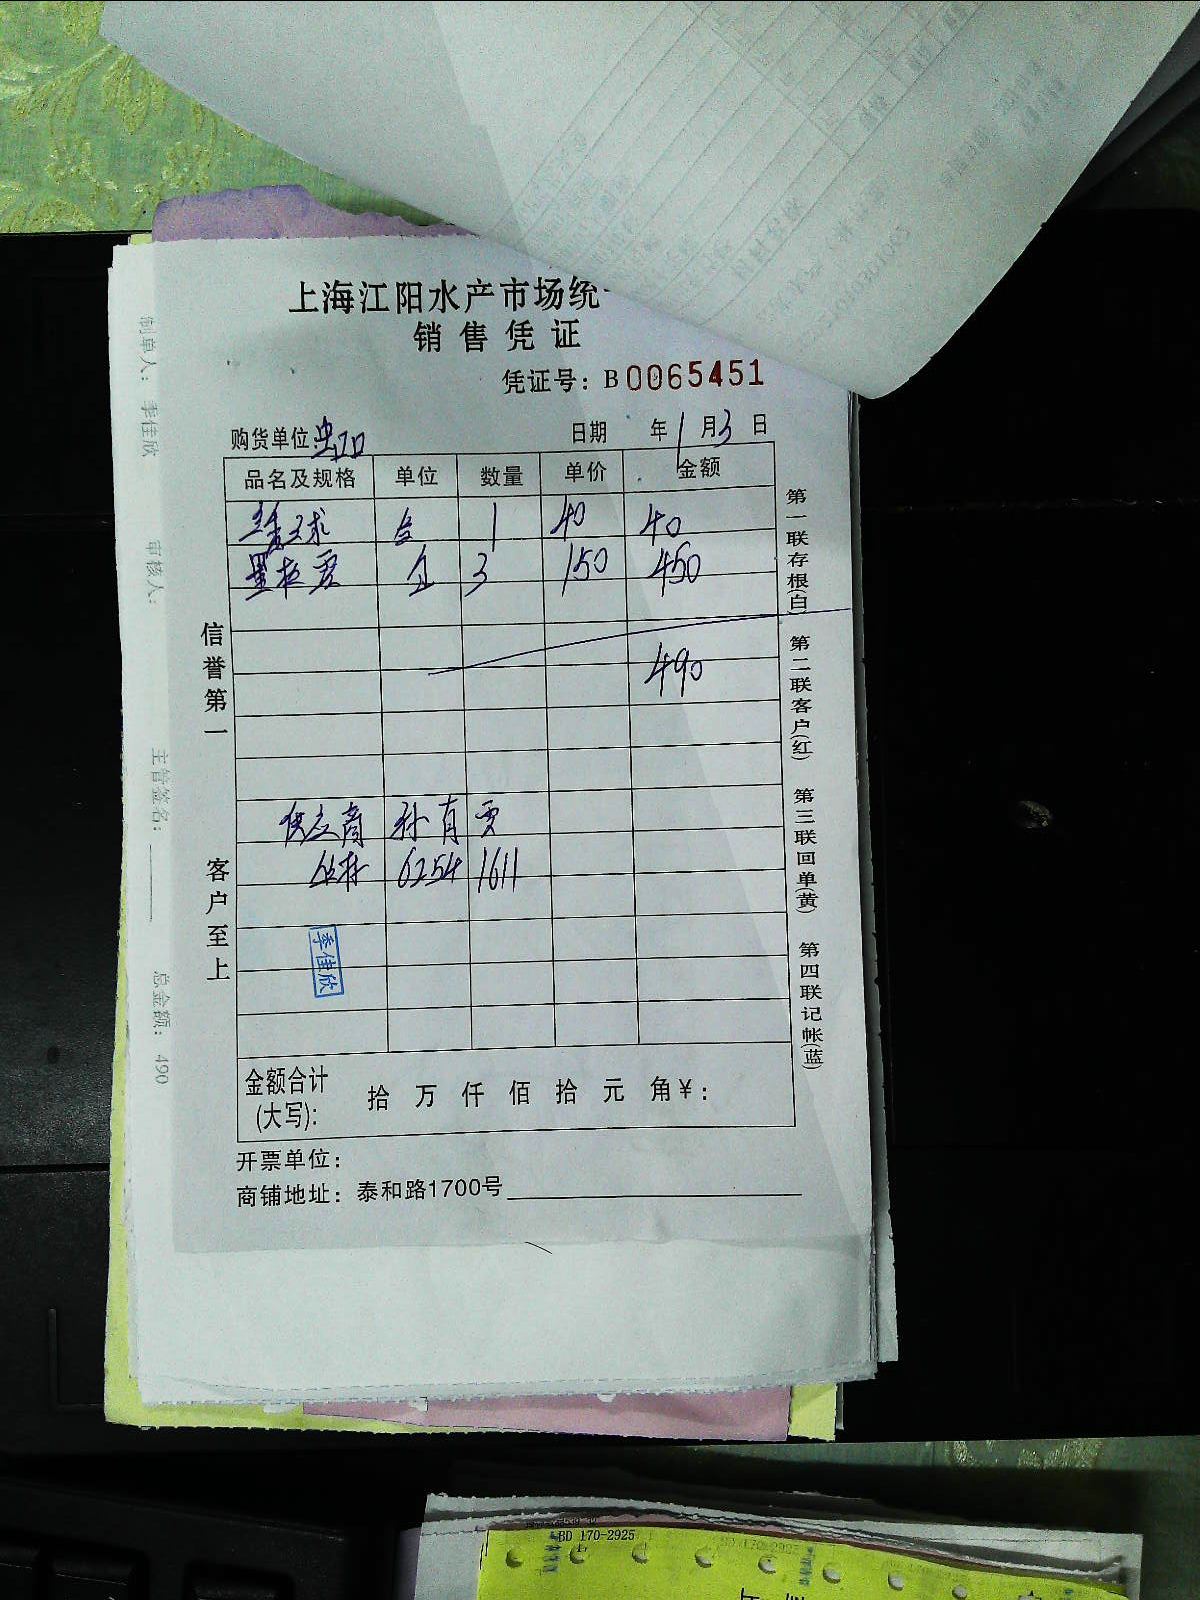 上海江阳水产市场统一
销售凭证
凭证号：B0065451
购货单位 虹口
日期 年1月3日
品名及规格 单位 数量 单价 金额
球 1 40 40
3 150 450
490
供应商 孙育
6254 1611
季佳欣
金额合计(大写)： 拾 万 仟 佰 拾 元 角￥：
开票单位：
商铺地址：泰和路1700号
信誉第一
客户至上
第一联存根(白) 第二联客户(红) 第三联回单(黄) 第四联记帐(蓝)
制单人：季佳欣 审核人： 主管签名： 总金额：490
BD 170-2925